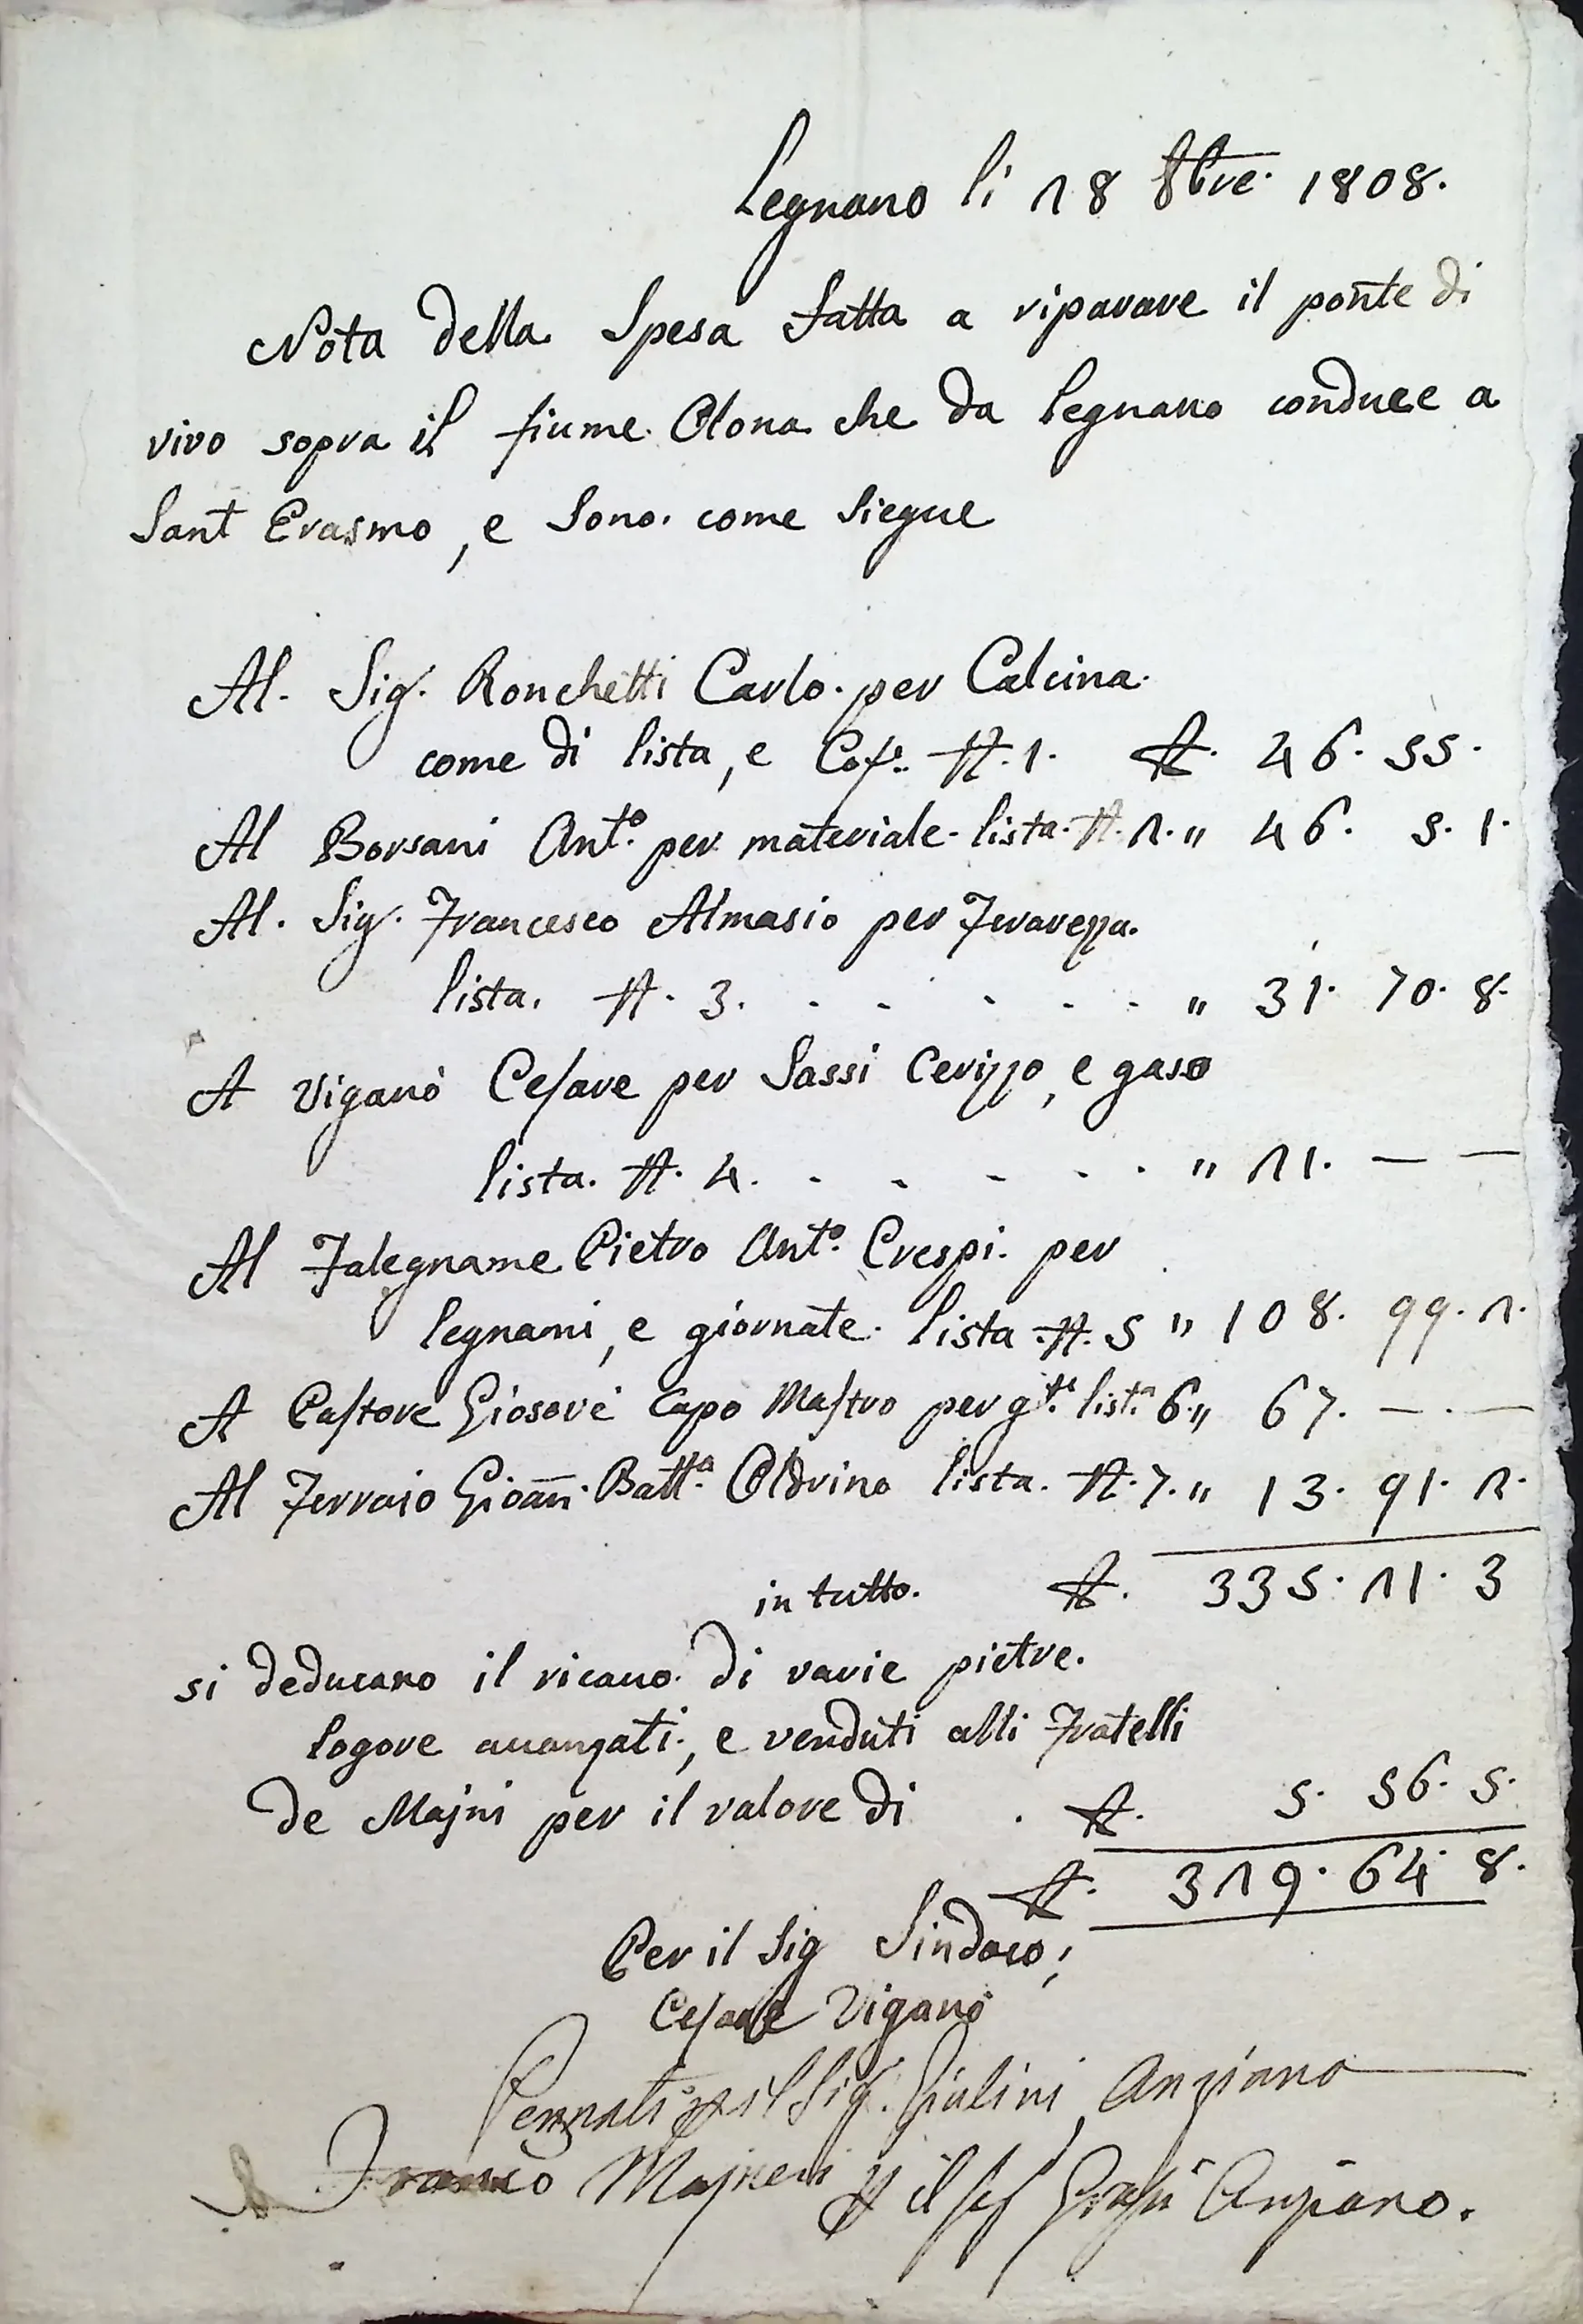 Legnano li 28 8bre. 1808.
Nota della Spesa fatta a riparare il ponte di
vivo sopra il fiume Olona che da Legnano conduce a
Sant Erasmo, e Sono come Siegue
Al Sig. Ronchetti Carlo per Calcina
come di lista, e Cofe. N. 1. £. 46. 55.
Al Borsani Anto. per materiale lista N. 2. " 46. 5. 1.
Al Sig. Francesco Almasio per Feravezza
lista. N. 3. . . . . . " 31. 70. 8.
A Viganò Cesare per Sassi Cerizzo, e gaso
lista. N. 4. . . . . . " 21. — —
Al Falegname Pietro Anto. Crespi per
legnami, e giornate lista N. 5 " 108. 99. 2.
A Pastore Giosovè Capo Mastro per gte. lista 6. " 67. — . —
Al Ferraio Gioan. Batta. Oldrino lista. N. 7. " 13. 91. 2.
in tutto. £. 335. 21. 3
si deducano il ricavo di varie pietre
logore avanzati, e venduti alli Fratelli
de Majni per il valore di . £. 5. 56. 5.
£. 329. 64. 8.
Per il Sig Sindaco;
Cesare Viganò
il Sig. Giulini Anziano
Franco Majneri il Anziano.